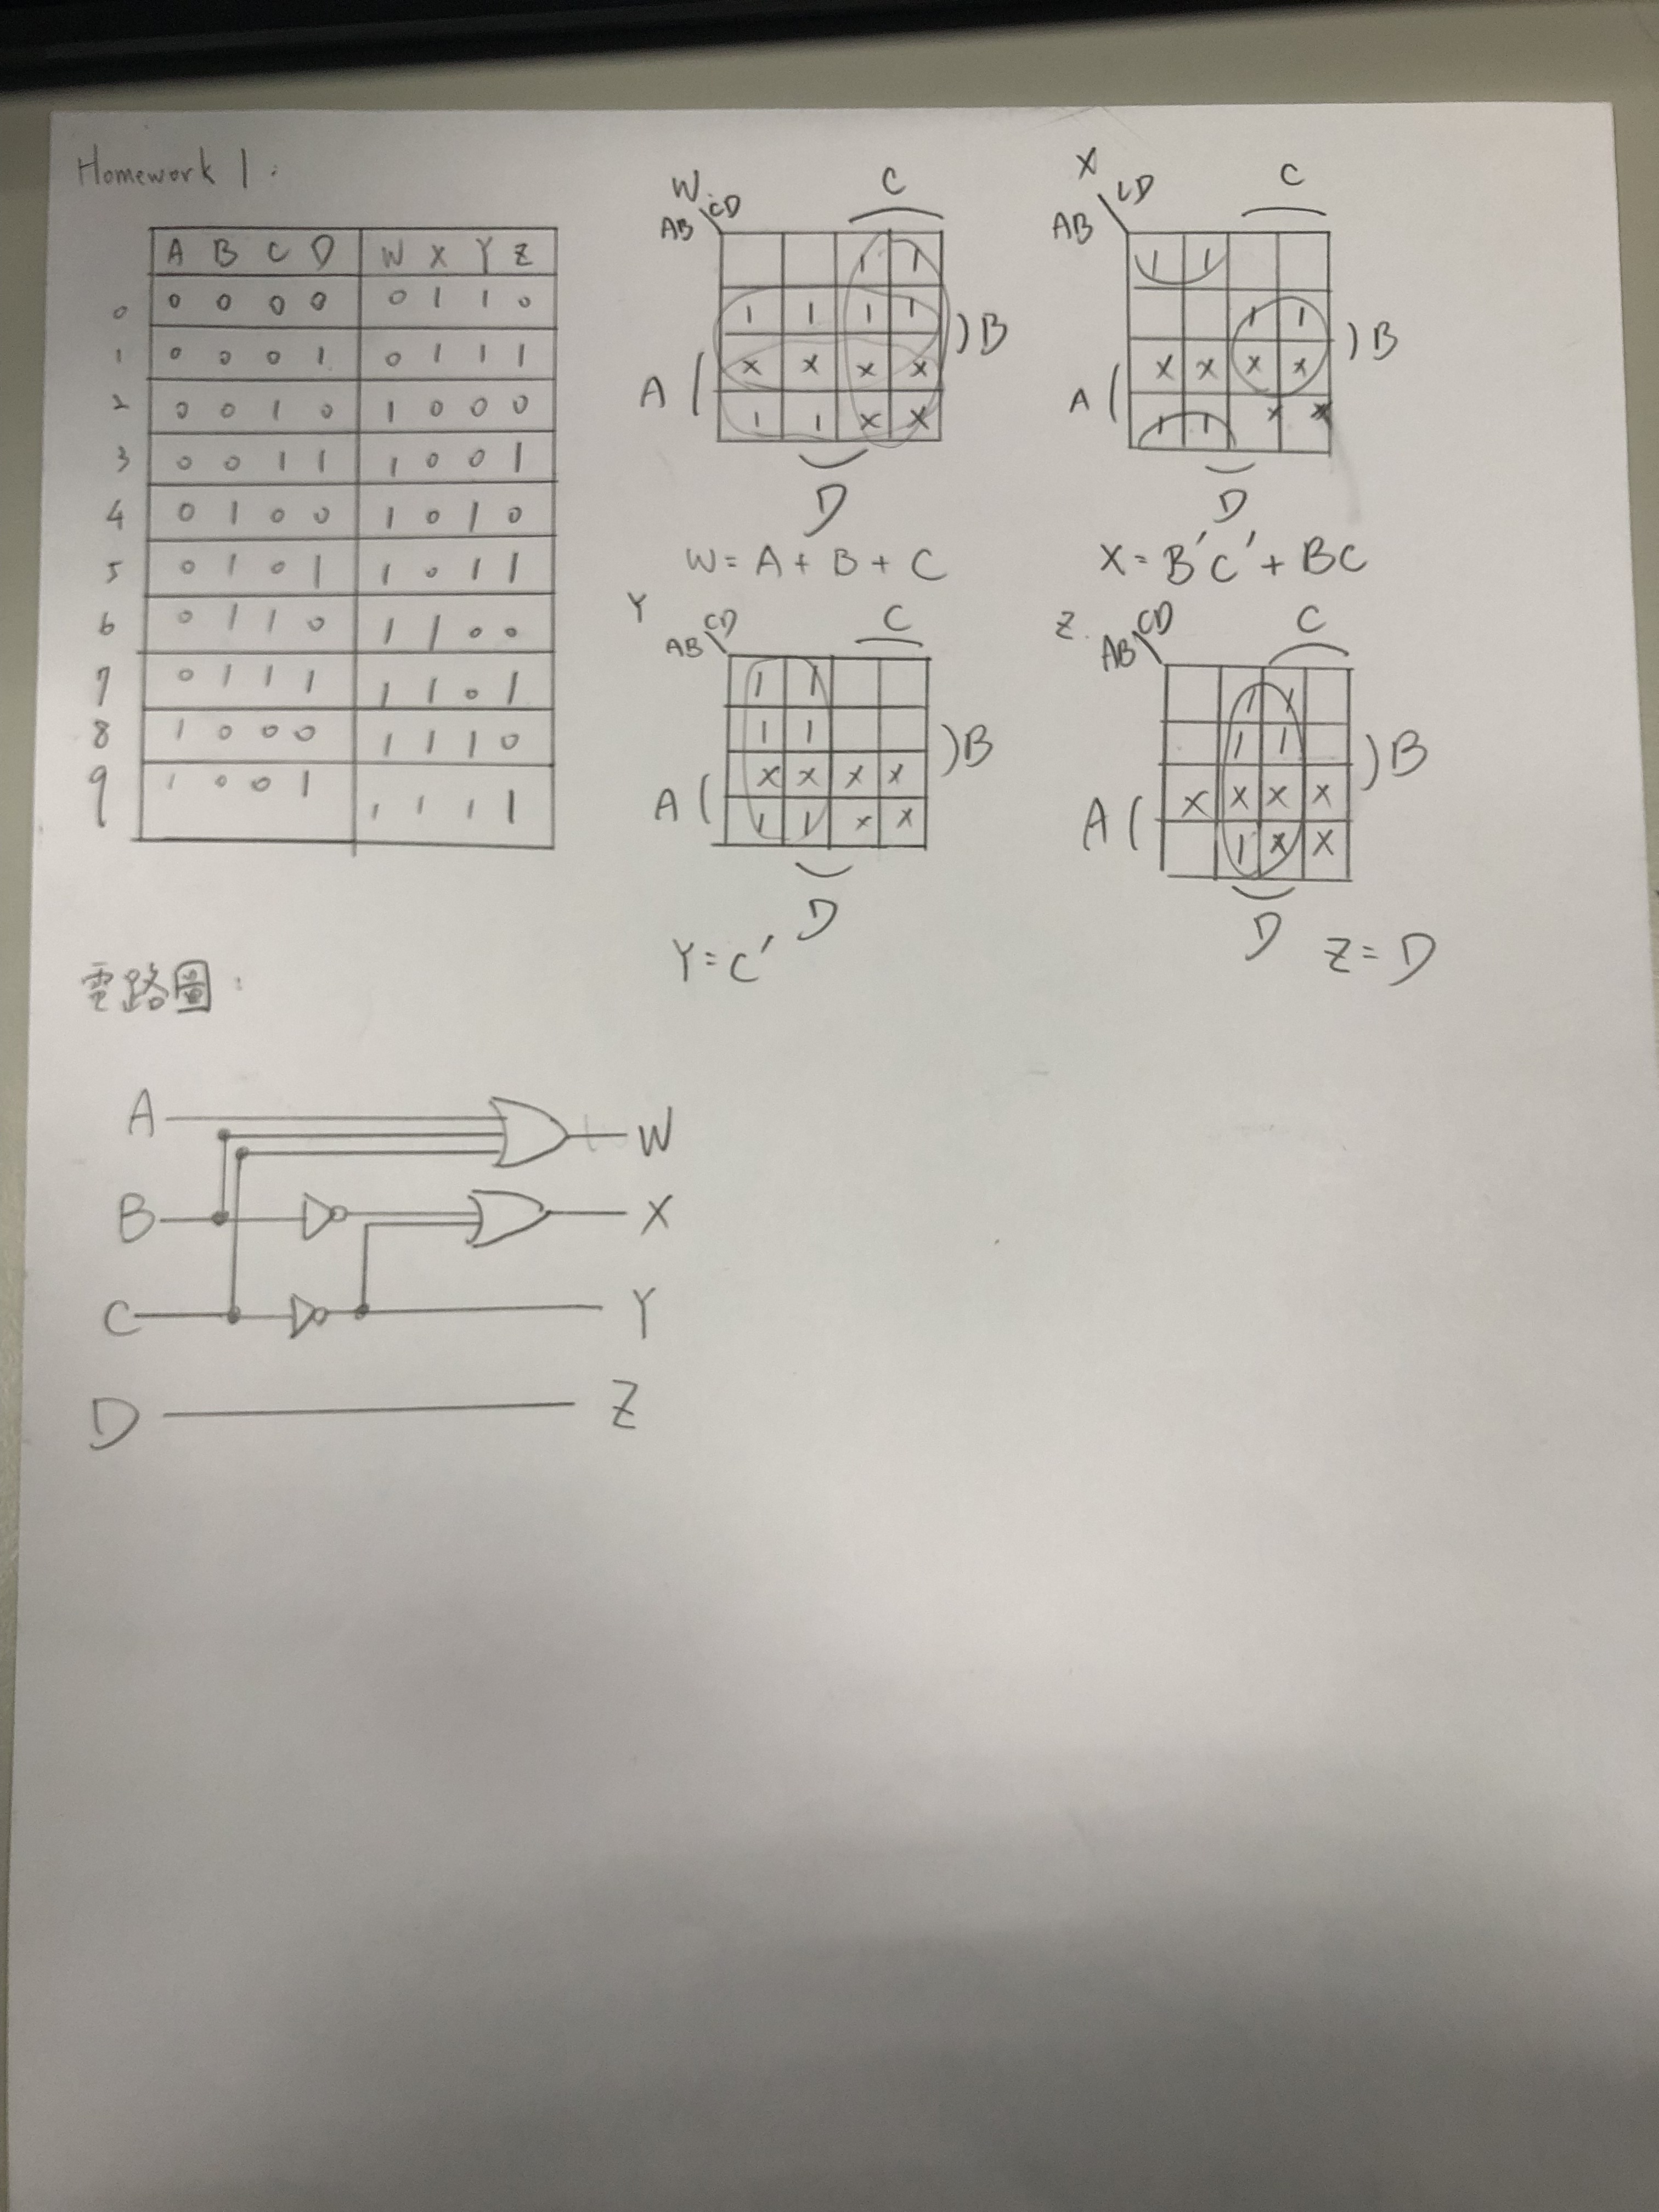 Homework 1:
A B C D W X Y Z
0 0 0 0 0 0 1 1 0
1 0 0 0 1 0 1 1 1
2 0 0 1 0 1 0 0 0
3 0 0 1 1 1 0 0 1
4 0 1 0 0 1 0 1 0
5 0 1 0 1 1 0 1 1
6 0 1 1 0 1 1 0 0
7 0 1 1 1 1 1 0 1
8 1 0 0 0 1 1 1 0
9 1 0 0 1 1 1 1 1
W
CD
C
AB
1 1
1 1 1 1
B
x x x x
A
1 1 x x
D
W = A + B + C
X
CD
C
AB
1 1
1 1
B
x x x x
A
1 1 x x
D
X = B'C' + BC
Y
CD
C
AB
1 1
1 1
B
x x x x
A
1 1 x x
D
Y = C'
Z.
CD
C
AB
1 1
1 1
B
x x x x
A
1 x x
D
Z = D
電路圖:
A W
B X
C Y
D Z